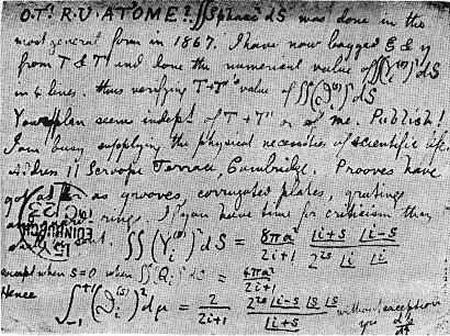 O.T'! R.U. AT 'OME? ∬ Spharc² dS was done in the
most general form in 1867. I have now bagged ξ & η
from T & T' and done the numerical value of ∬(Yᵢ⁽ˢ⁾)² dS
in 4 lines. thus verifying T + T's value of ∬(ϑᵢ⁽ˢ⁾)² dS
Your plan seems indept of T + T' or of me. Publish!
I am busy supplying the physical necessities of scientific life.
Address 11 Scroope Terrace, Cambridge. Prooves have
got as far as grooves, corrugated plates, gratings
rings, If you have time for criticism they
sent. ∬ (Yᵢ⁽ˢ⁾)² dS = 8πa²/(2i+1) |i+s |i−s / 2²ˢ |i |i
except when s=0 when ∬ Qᵢ² dS = 4πa²/(2i+1)
Hence ∫₋₁⁺¹ (ϑᵢ⁽ˢ⁾)² dμ = 2/(2i+1) 2²ˢ |i−s |s |s / |i+s without exception